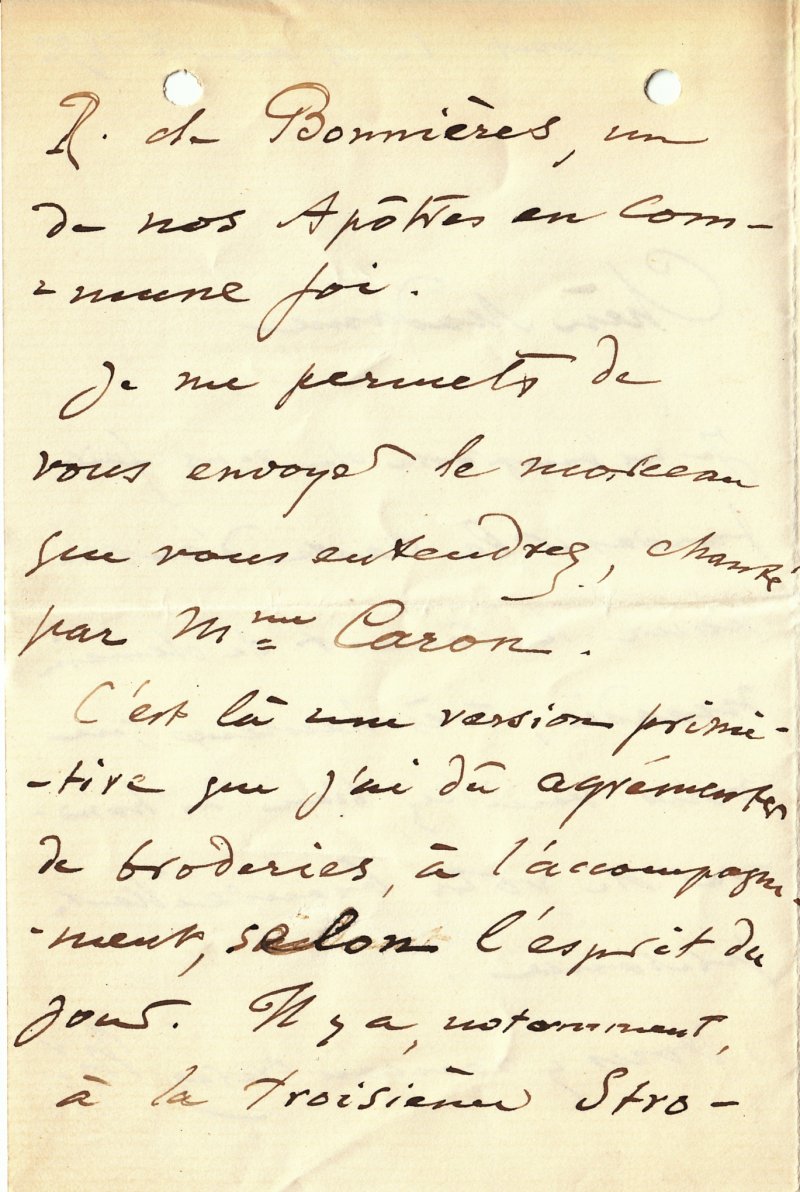 R. de Bonnières, un
de nos Apôtres en com-
-mune foi.
Je me permets de
vous envoyer le morceau
que vous entendrez, chanté
par Mme Caron.
C'est là une version primi-
-tive que j'ai dû agrémenter
de broderies, à l'accompagne-
-ment, selon l'esprit du
jour. Il y a, notamment,
à la troisième Stro-